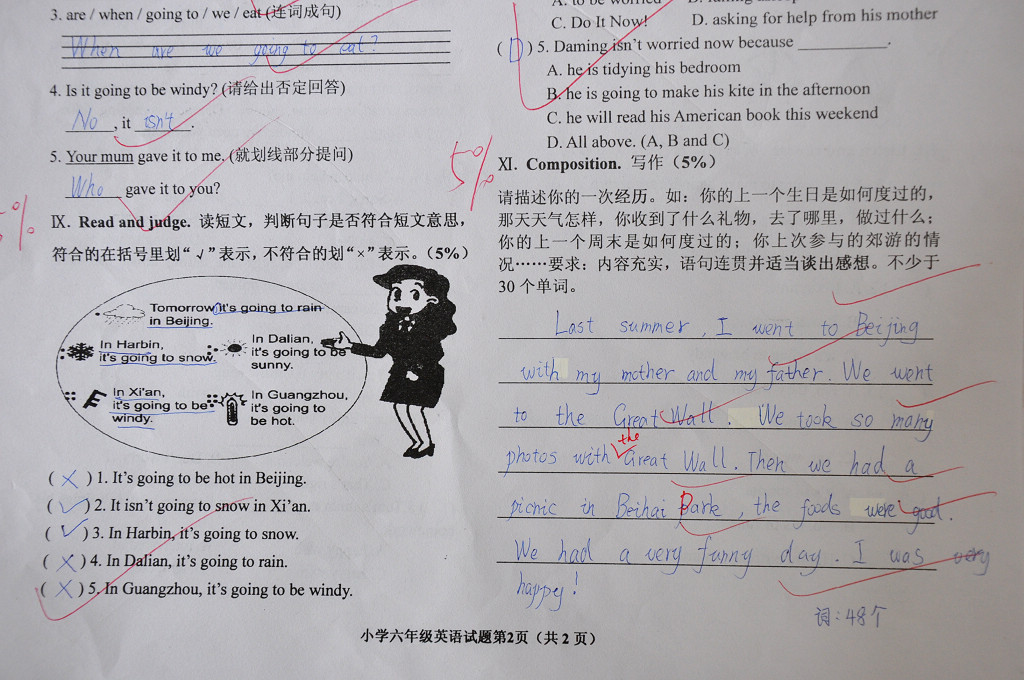 3. are / when / going to / we / eat (连词成句)
When are we going to eat?
4. Is it going to be windy? (请给出否定回答)
No , it isn't .
5. Your mum gave it to me. (就划线部分提问)
Who gave it to you?
5%
IX. Read and judge. 读短文，判断句子是否符合短文意思，
符合的在括号里划“√”表示，不符合的划“×”表示。（5%）
Tomorrow it's going to rain
in Beijing.
In Harbin,
it's going to snow.
In Dalian,
it's going to be
sunny.
In Xi'an,
it's going to be
windy.
In Guangzhou,
it's going to
be hot.
( × ) 1. It's going to be hot in Beijing.
( √ ) 2. It isn't going to snow in Xi'an.
( √ ) 3. In Harbin, it's going to snow.
( × ) 4. In Dalian, it's going to rain.
( × ) 5. In Guangzhou, it's going to be windy.
A. to be worried
C. Do It Now! D. asking for help from his mother
( D ) 5. Daming isn't worried now because ________.
A. he is tidying his bedroom
B. he is going to make his kite in the afternoon
C. he will read his American book this weekend
D. All above. (A, B and C)
5%
XI. Composition. 写作（5%）
请描述你的一次经历。如：你的上一个生日是如何度过的，
那天天气怎样，你收到了什么礼物，去了哪里，做过什么；
你的上一个周末是如何度过的；你上次参与的郊游的情
况……要求：内容充实，语句连贯并适当谈出感想。不少于
30 个单词。
Last summer, I went to Beijing
with my mother and my father. We went
to the Great Wall. We took so many
the
photos with Great Wall. Then we had a
picnic in Beihai Park, the foods were good.
We had a very funny day. I was very
happy!
词：48个
小学六年级英语试题第2页（共 2 页）